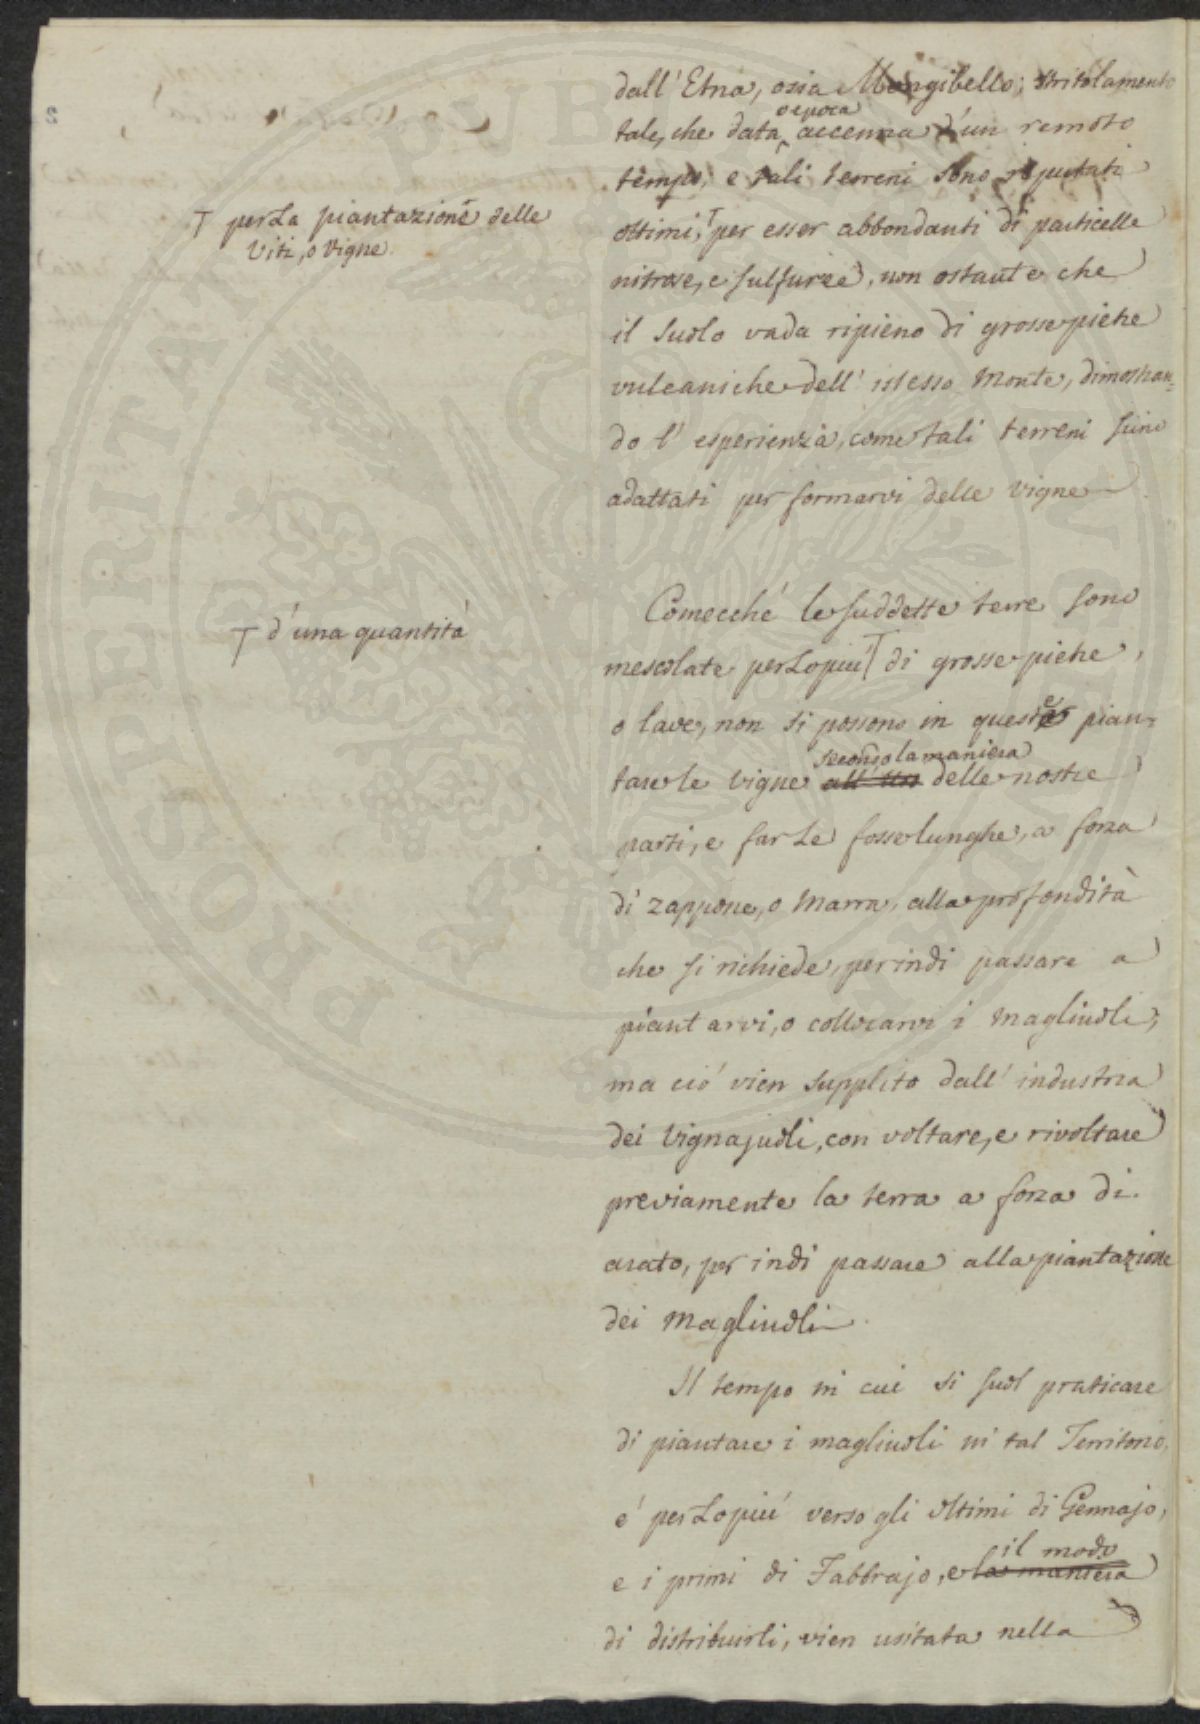 dall' Etna, ossia Mongibello; stritolamento
o epoca
tale, che data accenna d'un remoto
tempo, e tali terreni sono reputati
T per La piantazione delle
Viti, o Vigne.
ottimi, T per esser abbondanti di particelle
nitrose, e sulfuree, non ostante che
il suolo vada ripieno di grosse pietre
vulcaniche dell' istesso Monte, dimostran=
do l' esperienza, come tali terreni siino
adattati per formarvi delle vigne
Comecché le suddette terre sono
T d'una quantitá
mescolate per Lo piú T di grosse pietre,
o lave, non si possono in queste pian-
secondo la maniera
tare le vigne all' uso delle nostre
parti, e far Le fosse lunghe, a forza
di zappone, o Marra, alla profondità
che si richiede, per indi passare a
piantarvi, o collocarvi i magliuoli;
ma ció vien supplito dall' industria
dei Vignajuoli, con voltare, e rivoltare
previamente la terra a forza di
arato, per indi passare alla piantazione
dei Magliuoli
Il tempo in cui si suol praticare
di piantare i magliuoli in tal Territorio,
é per Lo piú verso gli ultimi di Gennajo,
il modo
e i primi di Fabbrajo, e la maniera
di distribuirli, vien usitata nella
PROSPERITAS
PUB